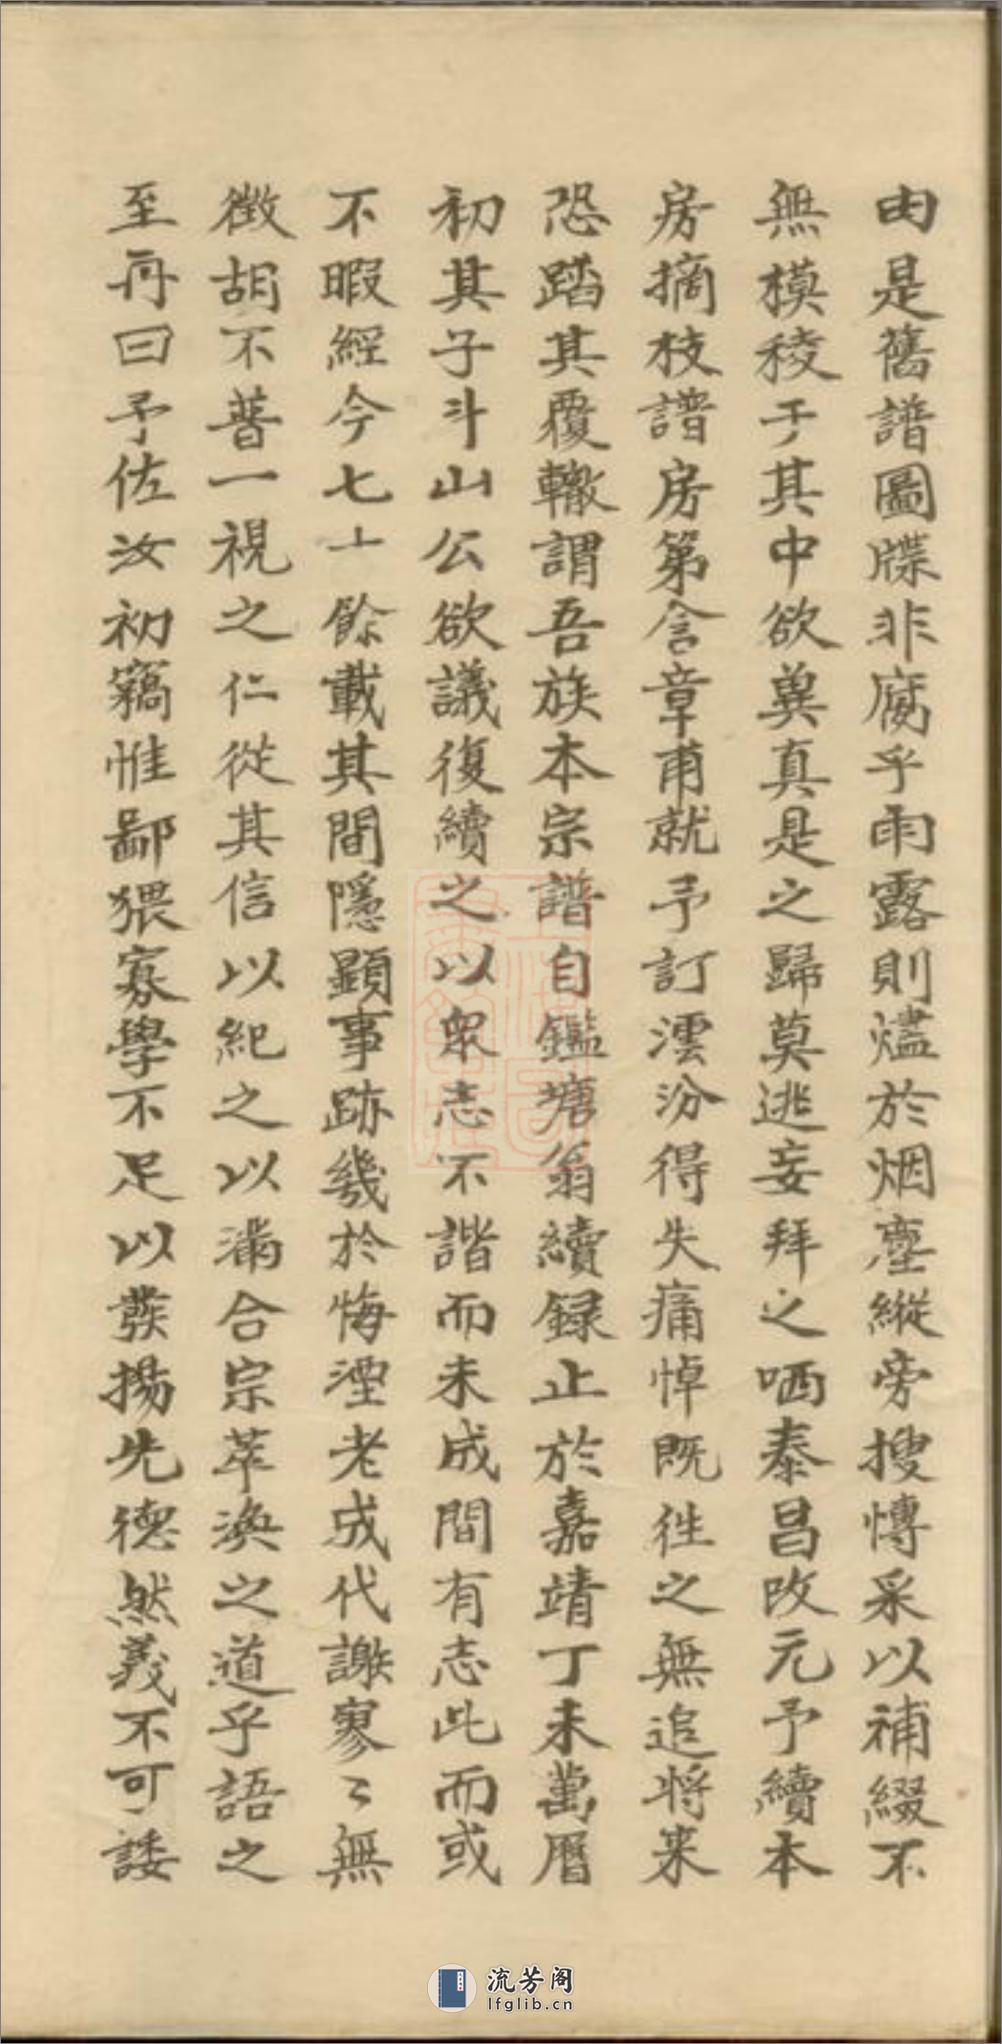 由是舊譜圖牒非腐乎雨露則燼於烟塵縱旁搜愽采以補綴不
無模稜于其中欲冀真是之歸莫逃妄拜之哂泰昌改元予續本
房摘枝譜房第含章甫就予訂澐汾得失痛悼既徃之無追将来
恐踏其覆轍謂吾族本宗譜自鑑塘翁續録止於嘉靖丁未萬曆
初其子斗山公欲議復續之以衆志不諧而未成間有志此而或
不暇經今七十餘載其間隱顯事跡幾於悔湮老成代謝寥〻無
徴胡不普一視之仁從其信以紀之以滿合宗萃渙之道乎語之
至再曰予佐汝初藁惟鄙猥寡學不足以發揚先德然義不可諉
流芳阁
lfglib.cn